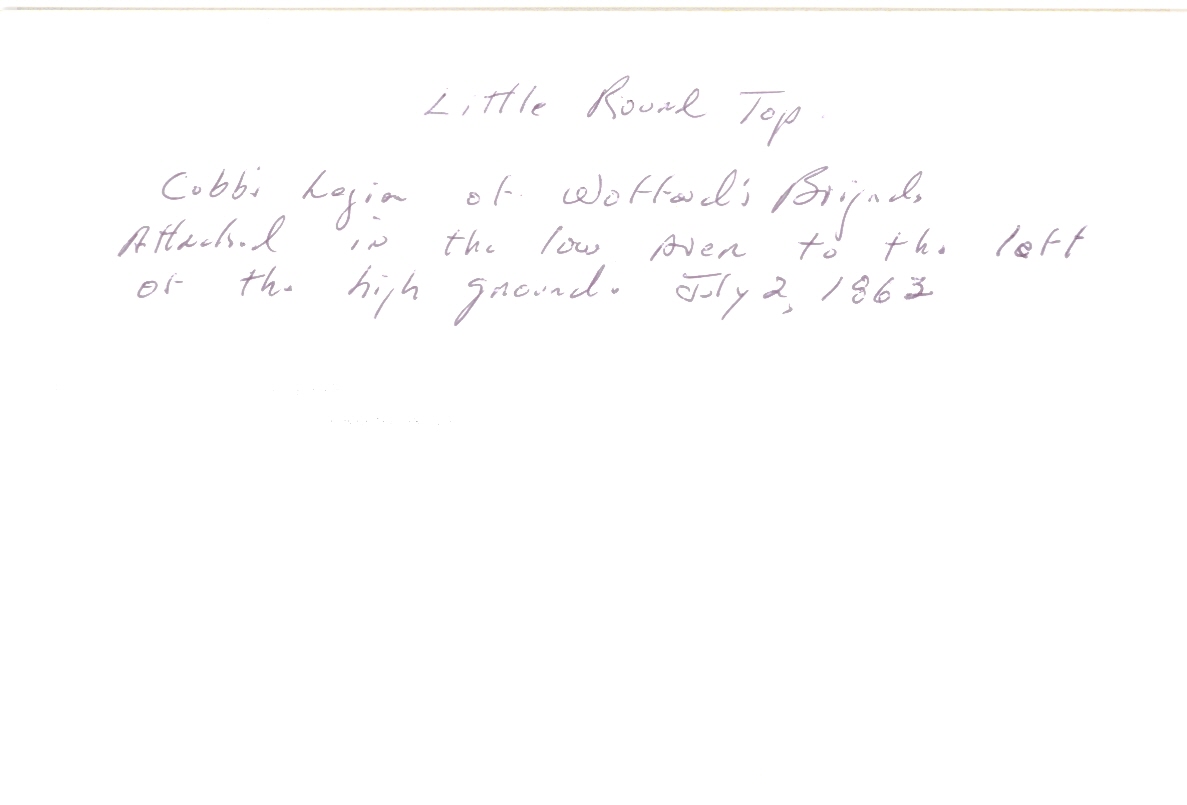 Little Round Top
Cobb's Legion of Wofford's Brigade
Attacked in the low area to the left
of the high ground. July 2, 1863